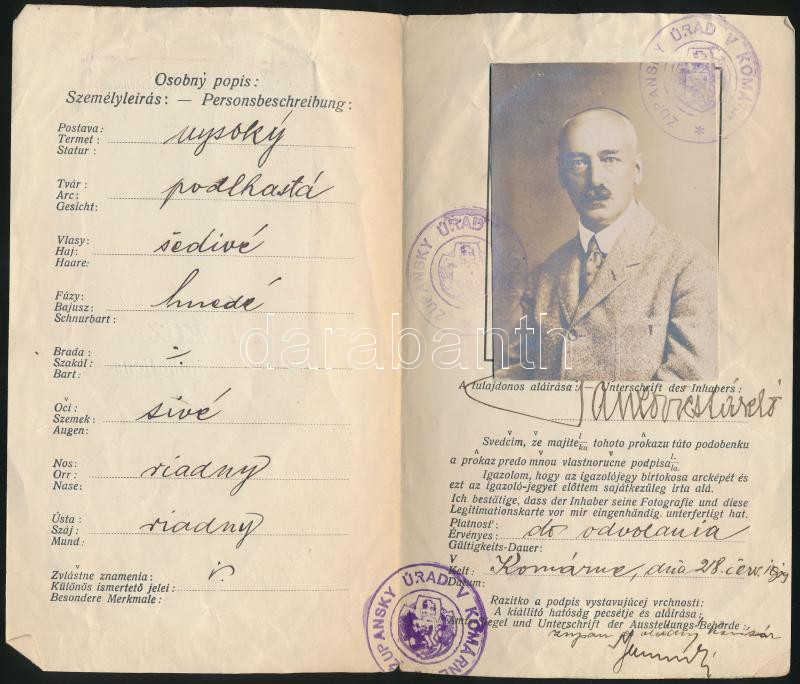 Osobný popis:
Személyleirás: — Personsbeschreibung:
Postava:
Termet:
Statur:
vysoký
Tvár:
Arc:
Gesicht:
podlhastá
Vlasy:
Haj:
Haare:
šedivé
Fúzy:
Bajusz:
Schnurbart:
hnedé
Brada:
Szakál:
Bart:
Oči:
Szemek:
Augen:
sivé
Nos:
Orr:
Nase:
riadny
Ústa:
Száj:
Mund:
riadny
Zvlástne znamenia:
Különös ismertető jelei:
Besondere Merkmale:
ŽUPANSKÝ ÚRAD V KOMÁRNE
ŽUPANSKÝ ÚRAD
ŽUPANSKÝ ÚRAD V KOMÁRNE
darabanth
A tulajdonos aláirása: — Unterschrift des Inhabers:
László
Svedčím, že majite l/ku tohoto prôkazu túto podobenku
a prôkaz predo mnou vlastnoručne podpísa l./la.
Igazolom, hogy az igazolójegy birtokosa arcképét és
ezt az igazoló-jegyet előttem sajátkezűleg irta alá.
Ich bestätige, dass der Inhaber seine Fotografie und diese
Legitimationskarte vor mir eingenhändig. unterfertigt hat.
Platnosť:
Érvényes:
Gültigkeits-Dauer:
do odvolania
Kelt:
Datum:
Komárne, dňa 28. červ.
Razitko a podpis vystavujúcej vrchnosti:
A kiállitó hatóság pecsétje és aláirása:
Amtssiegel und Unterschrift der Ausstellungs-Behörde: